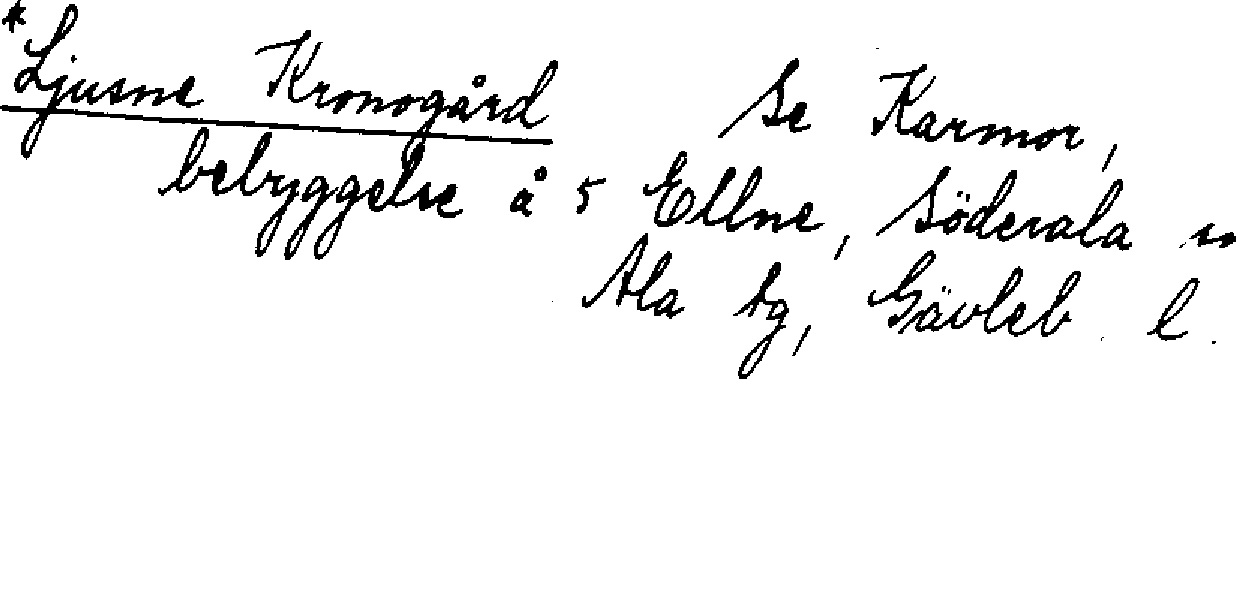 *Ljusne Kronogård Se Karmor,
bebyggelse å 5 Ellne, Söderala sn
Ala tg, Gävleb. l.